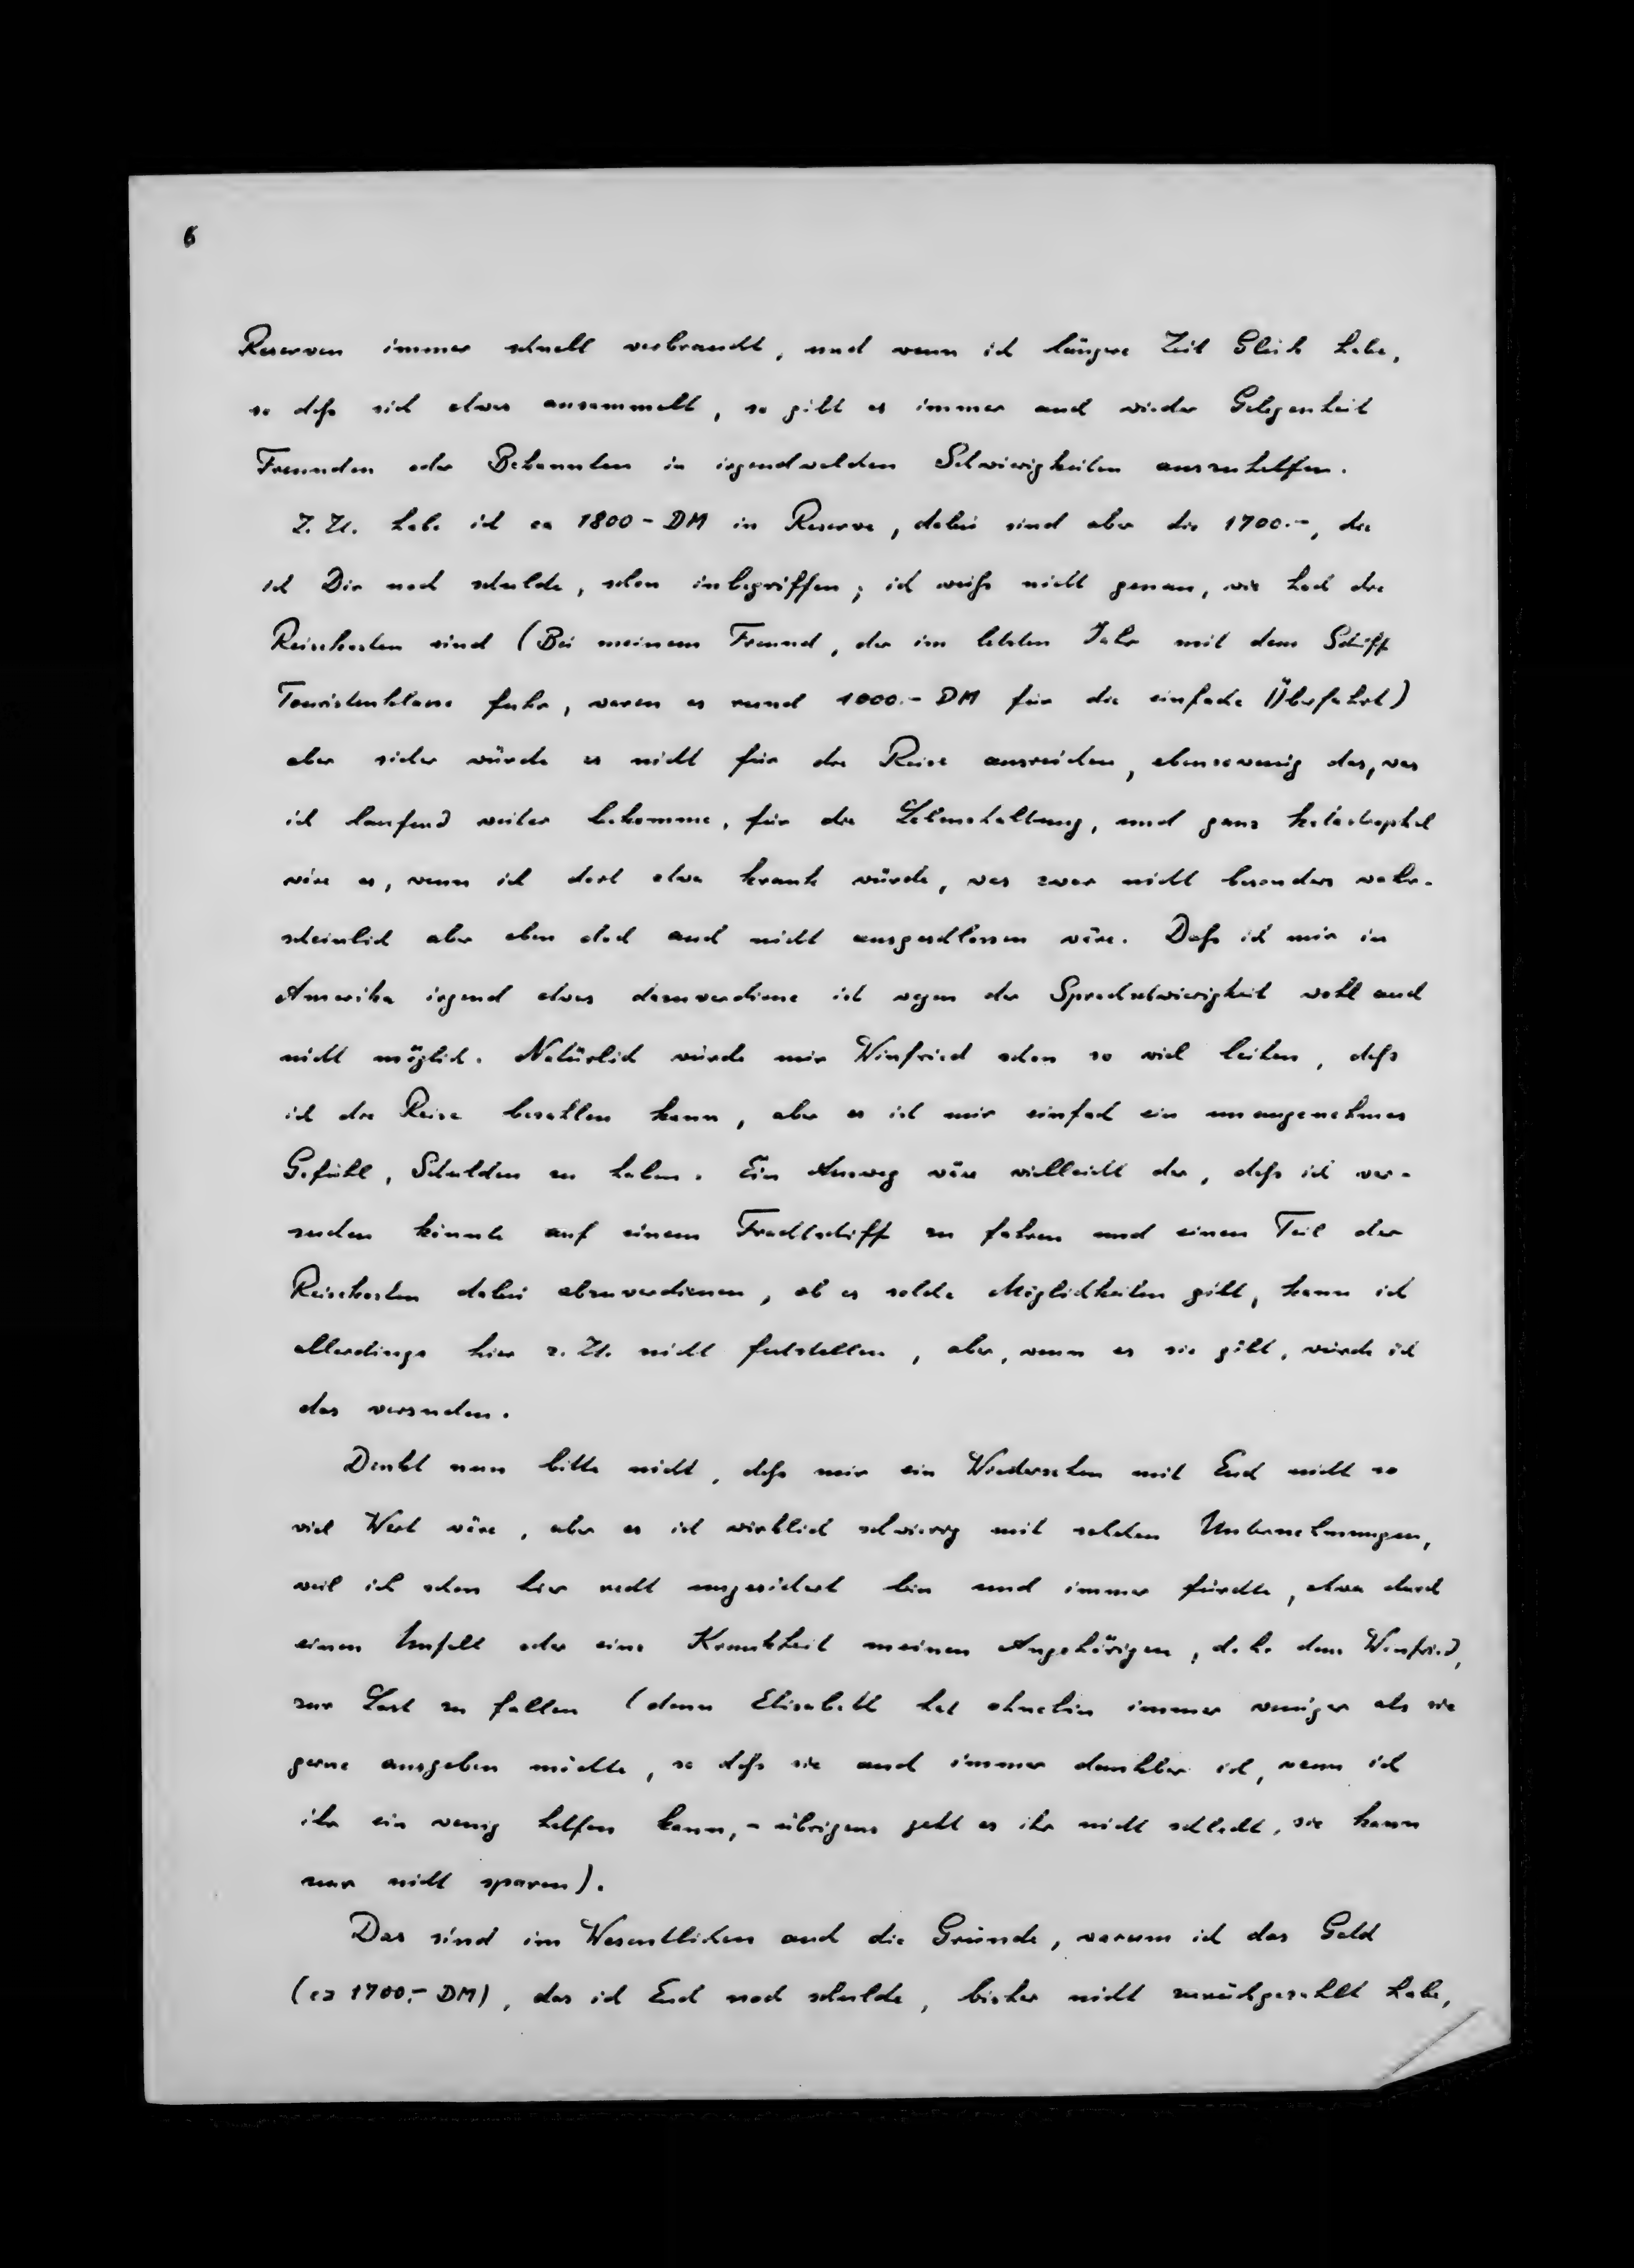 6
Reserven immer schnell verbraucht, und wenn ich längere Zeit Glück habe,
so daß sich etwas ansammelt, so gibt es immer auch wieder Gelegenheit
Freunden oder Bekannten in irgendwelchen Schwierigkeiten auszuhelfen.
Z. Zt. habe ich ca 1800 - DM in Reserve, dabei sind aber die 1700.-, die
ich Dir noch schulde, schon inbegriffen; ich weiß nicht genau, wie hoch die
Reisekosten sind (Bei meinem Freund, der im letzten Jahr mit dem Schiff
Touristenklasse fuhr, waren es rund 1000.- DM für die einfache Überfahrt)
aber sicher würde es nicht für die Reise ausreichen, ebensowenig das, was
ich laufend weiter bekomme, für die Lebenshaltung, und ganz katastrophal
wäre es, wenn ich dort etwa krank würde, was zwar nicht besonders wahr-
scheinlich aber eben doch auch nicht ausgeschlossen wäre. Daß ich mir in
Amerika irgend etwas dazuverdiene ist wegen der Sprachschwierigkeit wohl auch
nicht möglich. Natürlich würde mir Winfried schon so viel leihen, daß
ich die Reise bezahlen kann, aber es ist mir einfach ein unangenehmes
Gefühl, Schulden zu haben. Ein Ausweg wäre vielleicht der, daß ich ver-
suchen könnte auf einem Frachtschiff zu fahren und einen Teil der
Reisekosten dabei abzuverdienen, ob es solche Möglichkeiten gibt, kann ich
allerdings hier z. Zt. nicht feststellen, aber, wenn es sie gibt, würde ich
das versuchen.
Denkt nun bitte nicht, daß mir ein Wiedersehen mit Euch nicht so
viel Wert wäre, aber es ist wirklich schwierig mit solchen Unternehmungen,
weil ich schon hier recht ungesichert bin und immer fürchte, etwa durch
einen Unfall oder eine Krankheit meinen Angehörigen, d. h. dem Winfried,
zur Last zu fallen (denn Elisabeth hat ohnehin immer weniger als sie
gerne ausgeben möchte, so daß sie auch immer dankbar ist, wenn ich
ihr ein wenig helfen kann, - übrigens geht es ihr nicht schlecht, sie kann
nur nicht sparen).
Das sind im Wesentlichen auch die Gründe, warum ich das Geld
(ca 1700.- DM), das ich Euch noch schulde, bisher nicht zurückgezahlt habe,